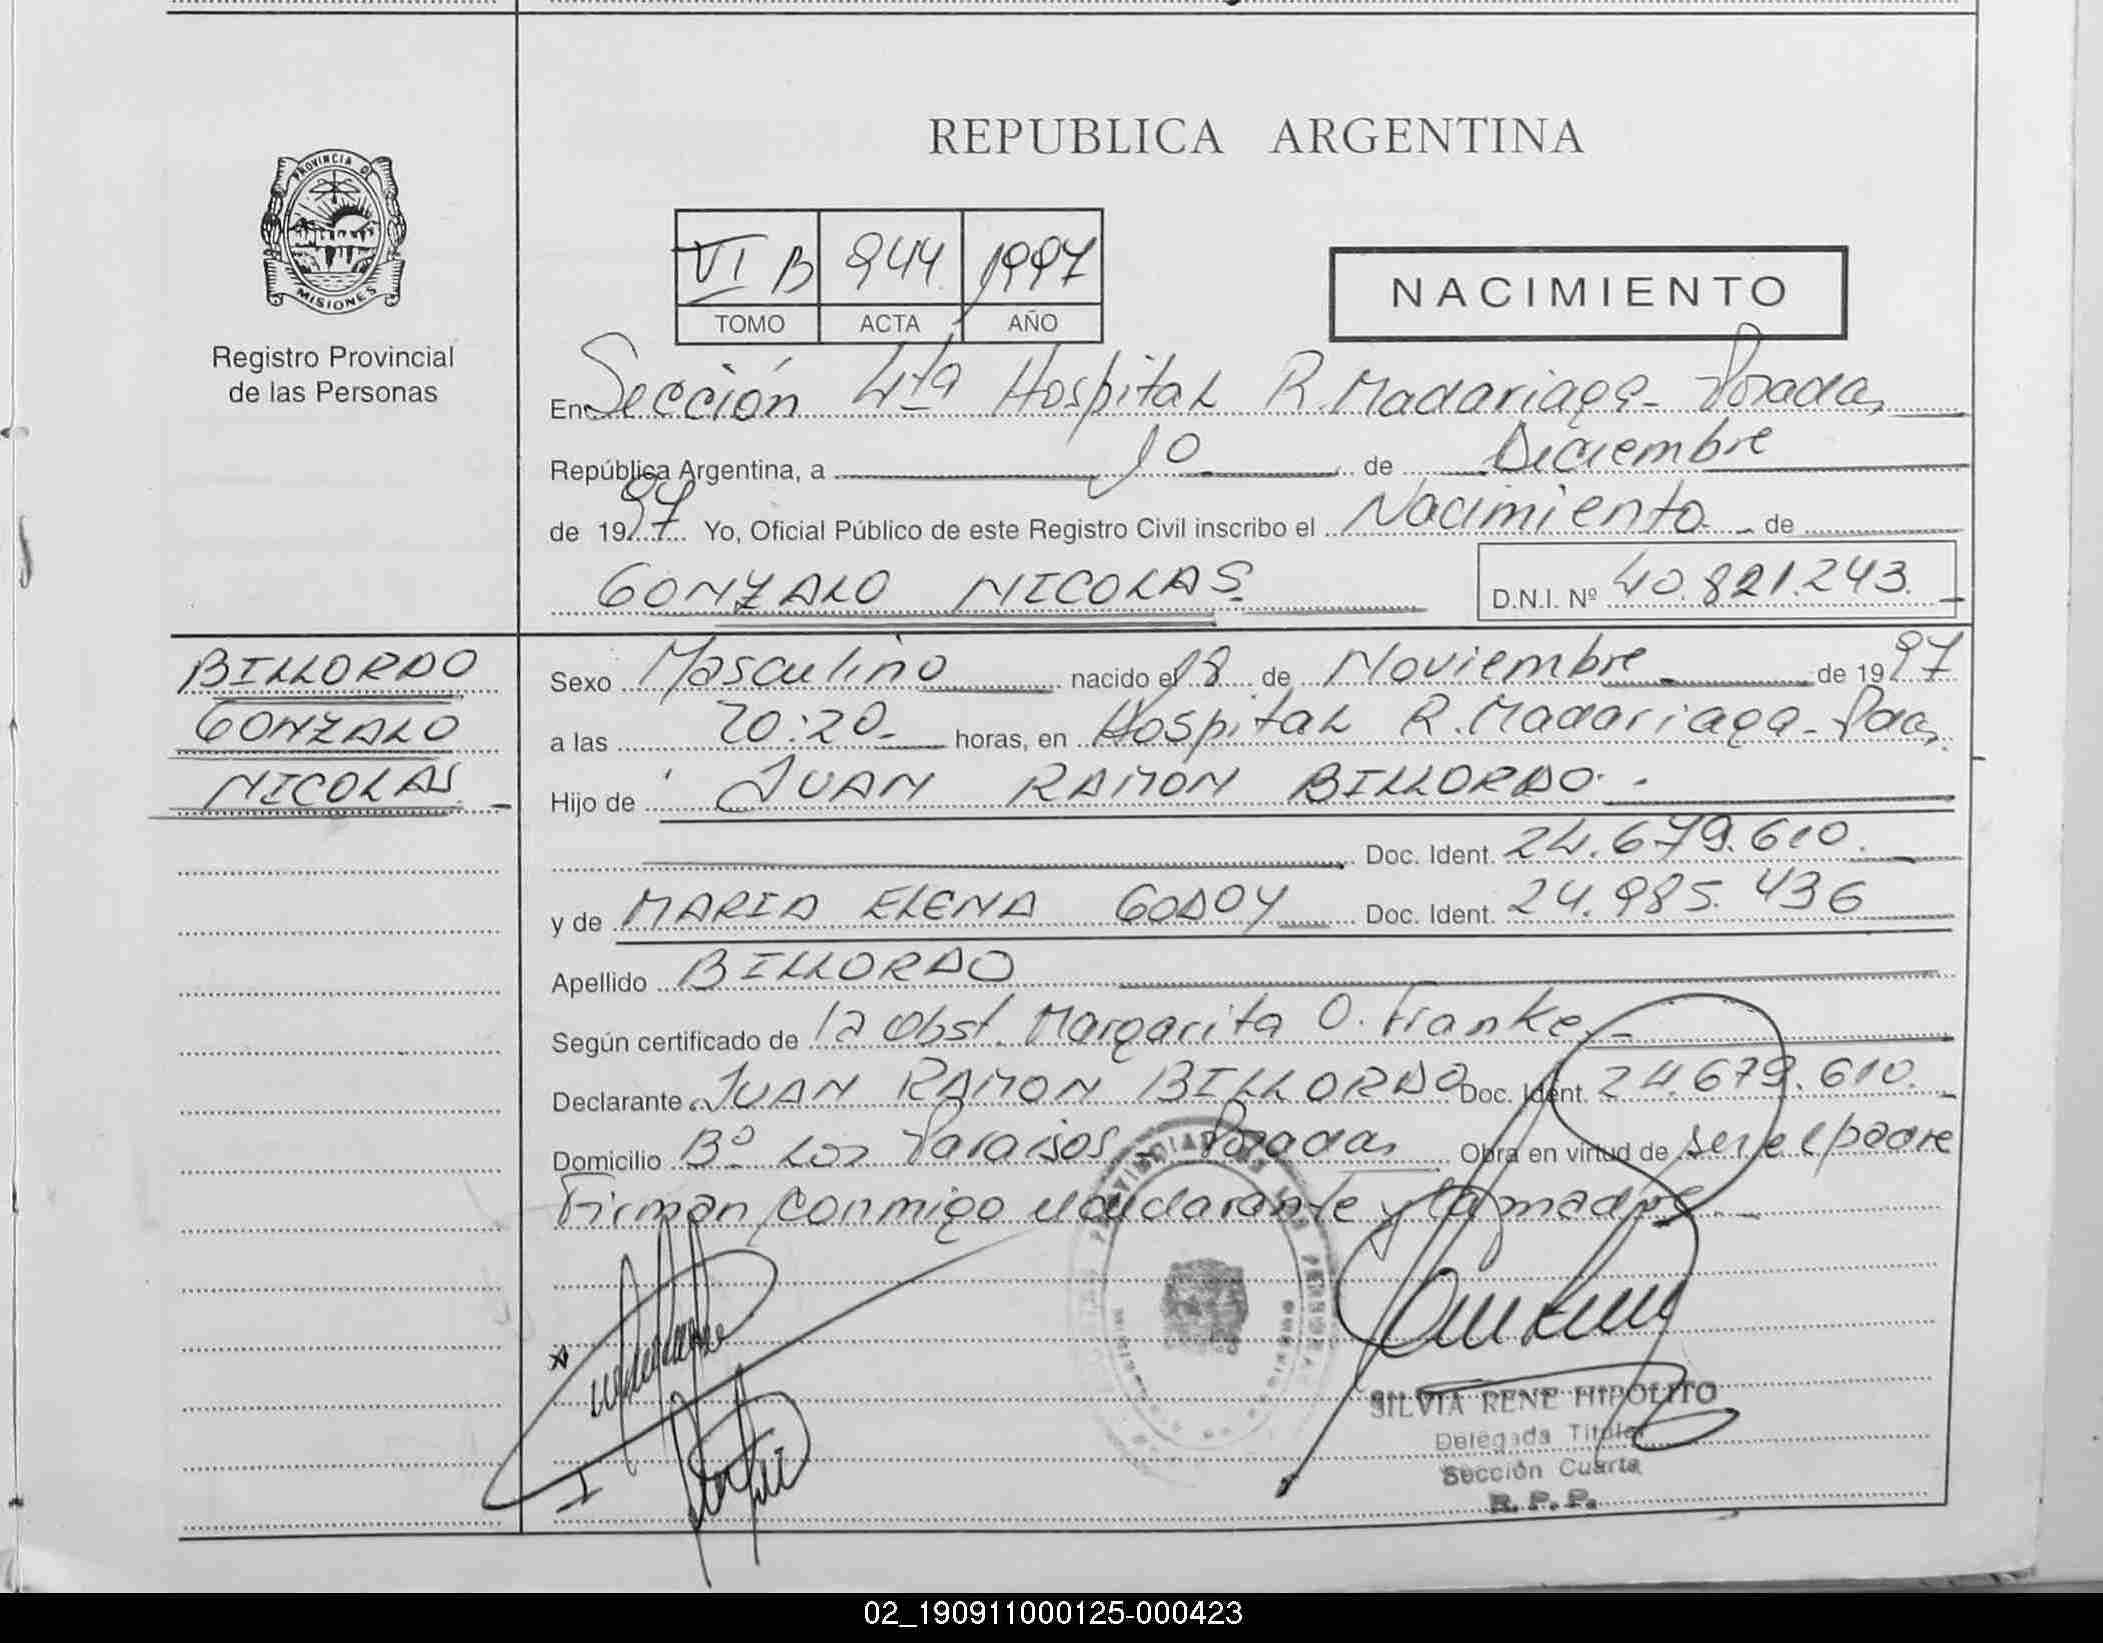 REPUBLICA ARGENTINA
PROVINCIA DE
MISIONES
Registro Provincial
de las Personas
VI B 944 1997
TOMO ACTA AÑO
NACIMIENTO
En Sección 4ta Hospital R. Madariaga - Posadas
República Argentina, a 10 de Diciembre
de 1997 Yo, Oficial Público de este Registro Civil inscribo el Nacimiento de
GONZALO NICOLAS
D.N.I. Nº 40.821.243.
BILLORDO
GONZALO
NICOLAS
Sexo Masculino nacido el 18 de Noviembre de 1997
a las 20:20 horas, en Hospital R. Madariaga - Pdas,
Hijo de JUAN RAMON BILLORDO
Doc. Ident. 24.679.610.
y de MARIA ELENA GODOY Doc. Ident. 24.985.436
Apellido BILLORDO
Según certificado de la Obst. Margarita O. Franke
Declarante JUAN RAMON BILLORDO Doc. Ident. 24.679.610.
Domicilio Bº Los Paraisos - Posadas Obra en virtud de ser el padre
Firman conmigo el declarante y la madre
SILVIA RENE HIPOLITO
Delegada Titular
Sección Cuarta
R. P. P.
02_190911000125-000423